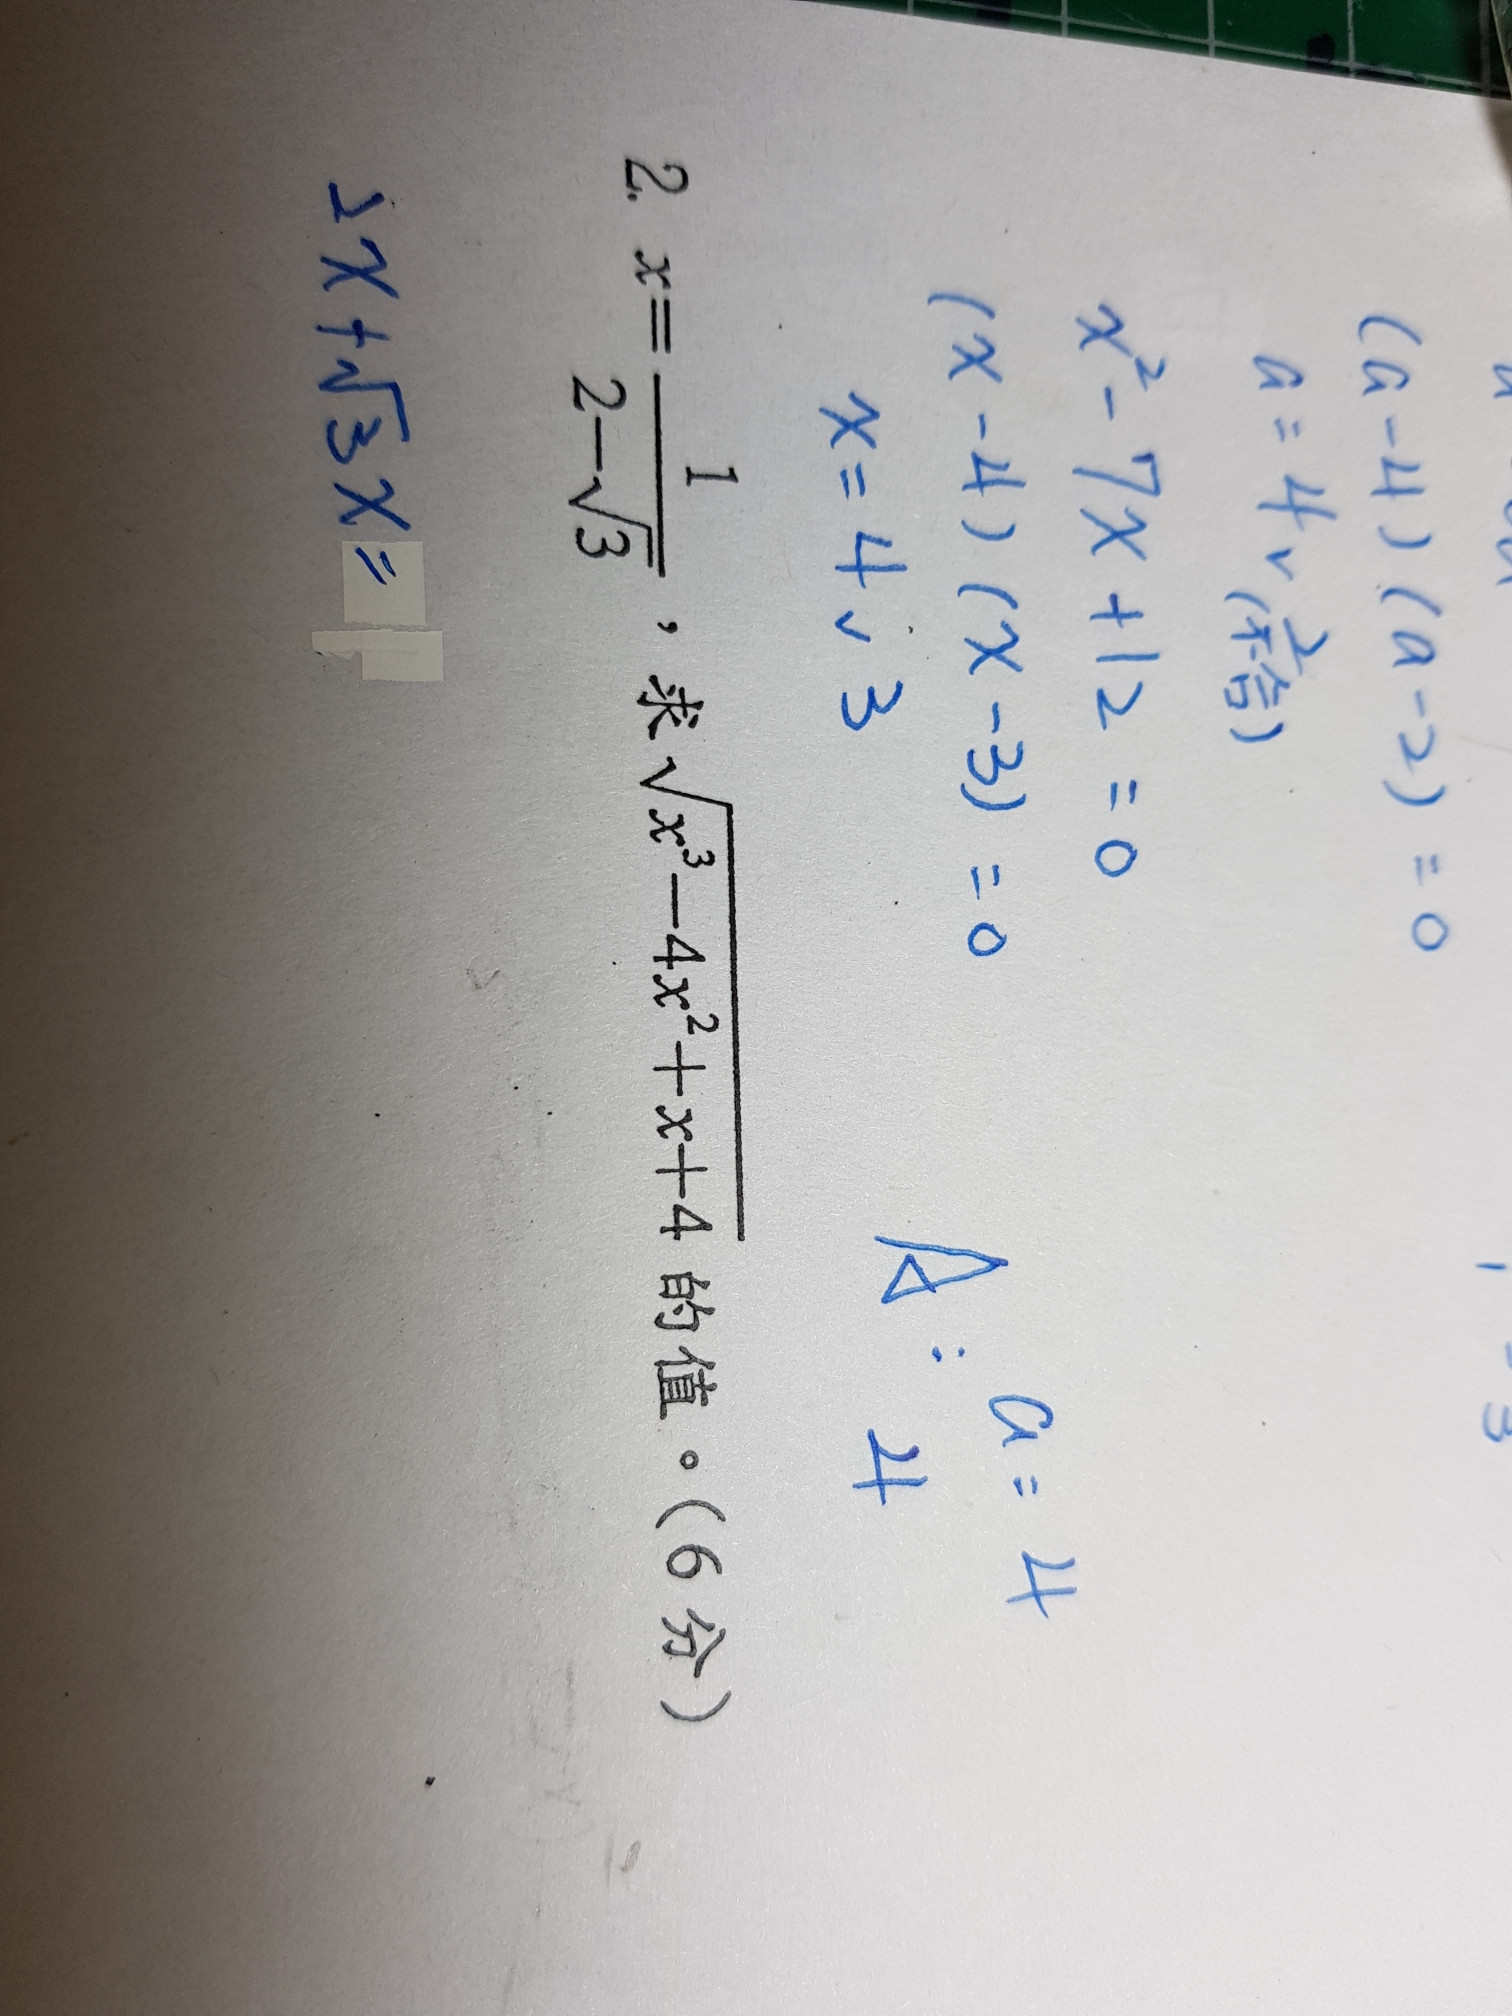 (a-4)(a-2)=0
a=4 v 2
(不合)
x²-7x+12=0
(x-4)(x-3)=0
x=4 v 3
A: a=4
4
2. x=1/(2-√3)，求√(x³-4x²+x+4)的值。(6分)
2x+√3x=